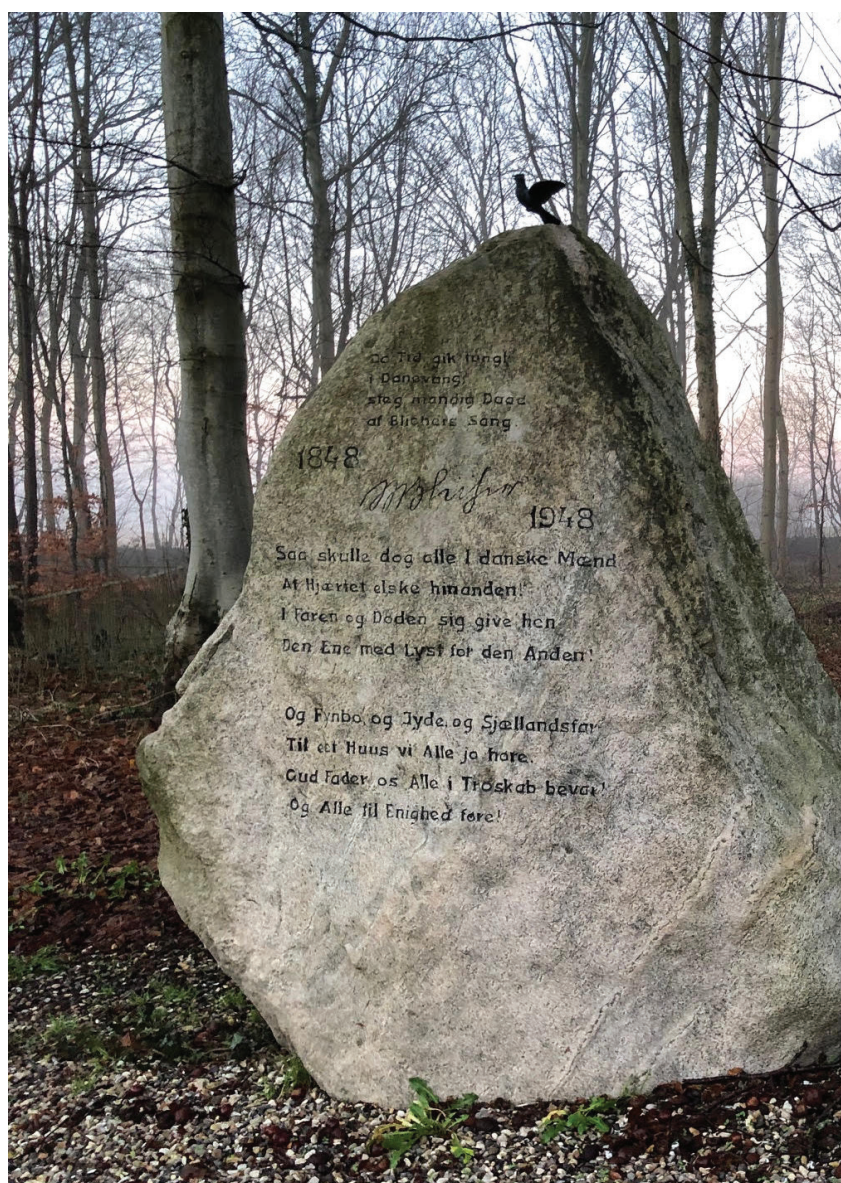 Da Tid gik tungt
i Danevang,
steg mandig Daad
af Blichers Sang.
1848
Blicher
1948
Saa skulle dog alle I danske Mænd
Af Hjertet elske hinanden!
I Faren og Döden sig give hen
Den Ene med Lyst for den Anden!
Og Fynbo, og Jyde, og Sjællandsfar
Til eet Huus vi Alle jo høre.
Gud Fader os Alle i Troskab bevar!
Og Alle til Enighed føre!